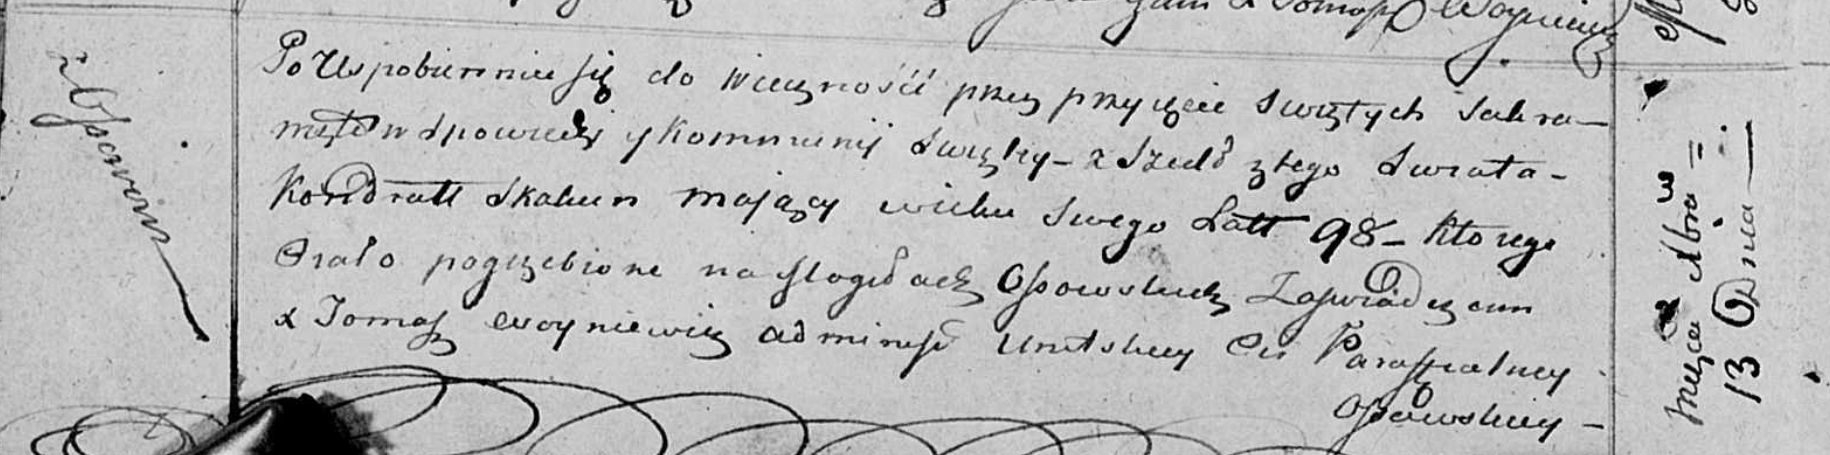 X Tomasz Woyniewicz
z Osowa
Po Usposobieniu się do Wiecznośći przez przyięcie Swiętych Sakra-
mętow Spowiedzi y Kommunij Swiętey - zszedł z tego Swiata -
Kondratt Skakun maiący wieku swego Latt 98 - ktorego
Ciało pogrzebione na Mogiłach Osowskich Zaswiadczam
X Tomasz Woyniewicz administ Unitskiey Cer Parafialney
Osowskiey -
Miesca
13 Dnia